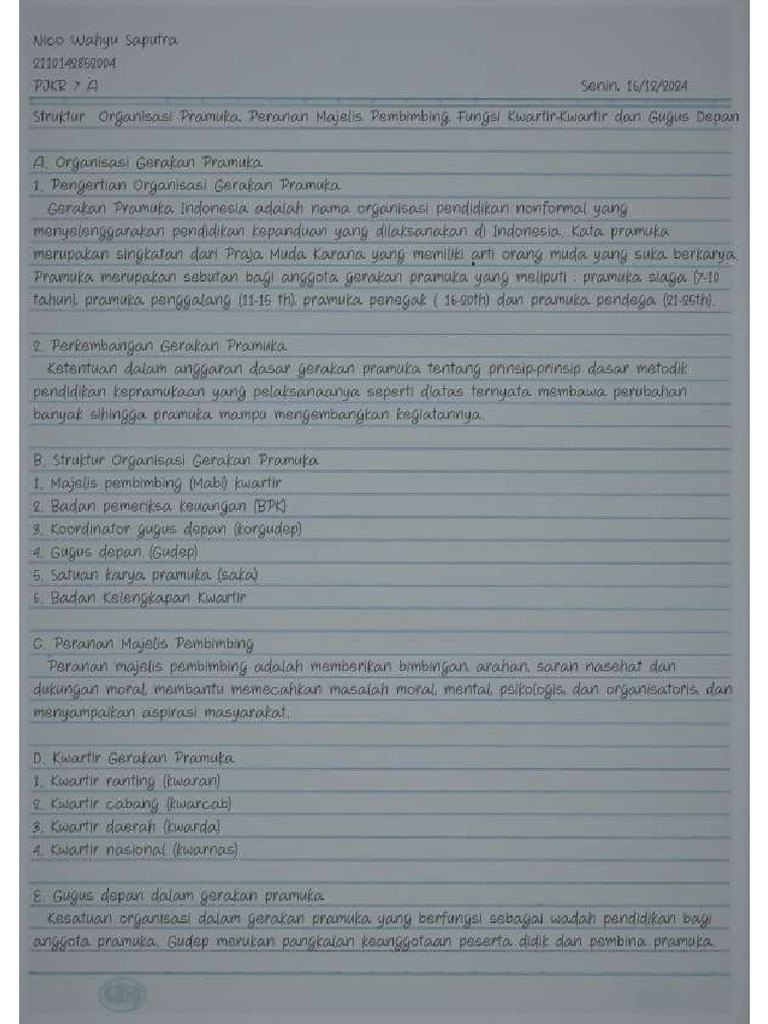 Nico Wahyu Saputra
2110142852004
PJKR 7 A
Senin, 16/12/2024
Struktur Organisasi Pramuka, Peranan Majelis Pembimbing, Fungsi Kwartir-Kwartir dan Gugus Depan
A. Organisasi Gerakan Pramuka
1. Pengertian Organisasi Gerakan Pramuka
Gerakan Pramuka Indonesia adalah nama organisasi pendidikan nonformal yang
menyelenggarakan pendidikan kepanduan yang dilaksanakan di Indonesia. Kata pramuka
merupakan singkatan dari Praja Muda Karana yang memiliki arti orang muda yang suka berkarya.
Pramuka merupakan sebutan bagi anggota gerakan pramuka yang meliputi : pramuka siaga (7-10
tahun), pramuka penggalang (11-15 th), pramuka penegak ( 16-20th) dan pramuka pendega (21-25th).
2. Perkembangan Gerakan Pramuka
Ketentuan dalam anggaran dasar gerakan pramuka tentang prinsip-prinsip dasar metodik
pendidikan kepramukaan yang pelaksanaanya seperti diatas ternyata membawa perubahan
banyak sihingga pramuka mampu mengembangkan kegiatannya.
B. Struktur Organisasi Gerakan Pramuka
1. Majelis pembimbing (Mabi) kwartir
2. Badan pemeriksa keuangan (BPK)
3. Koordinator gugus depan (korgudep)
4. Gugus depan (Gudep)
5. Satuan karya pramuka (saka)
6. Badan Kelengkapan Kwartir
C. Peranan Majelis Pembimbing
Peranan majelis pembimbing adalah memberikan bimbingan, arahan, saran nasehat dan
dukungan moral, membantu memecahkan masalah moral, mental, psikologis, dan organisatoris, dan
menyampaikan aspirasi masyarakat.
D. Kwartir Gerakan Pramuka
1. Kwartir ranting (kwaran)
2. Kwartir cabang (kwarcab)
3. Kwartir daerah (kwarda)
4. Kwartir nasional (kwarnas)
E. Gugus depan dalam gerakan pramuka
Kesatuan organisasi dalam gerakan pramuka yang berfungsi sebagai wadah pendidikan bagi
anggota pramuka. Gudep merukan pangkalan keanggotaan peserta didik dan pembina pramuka.